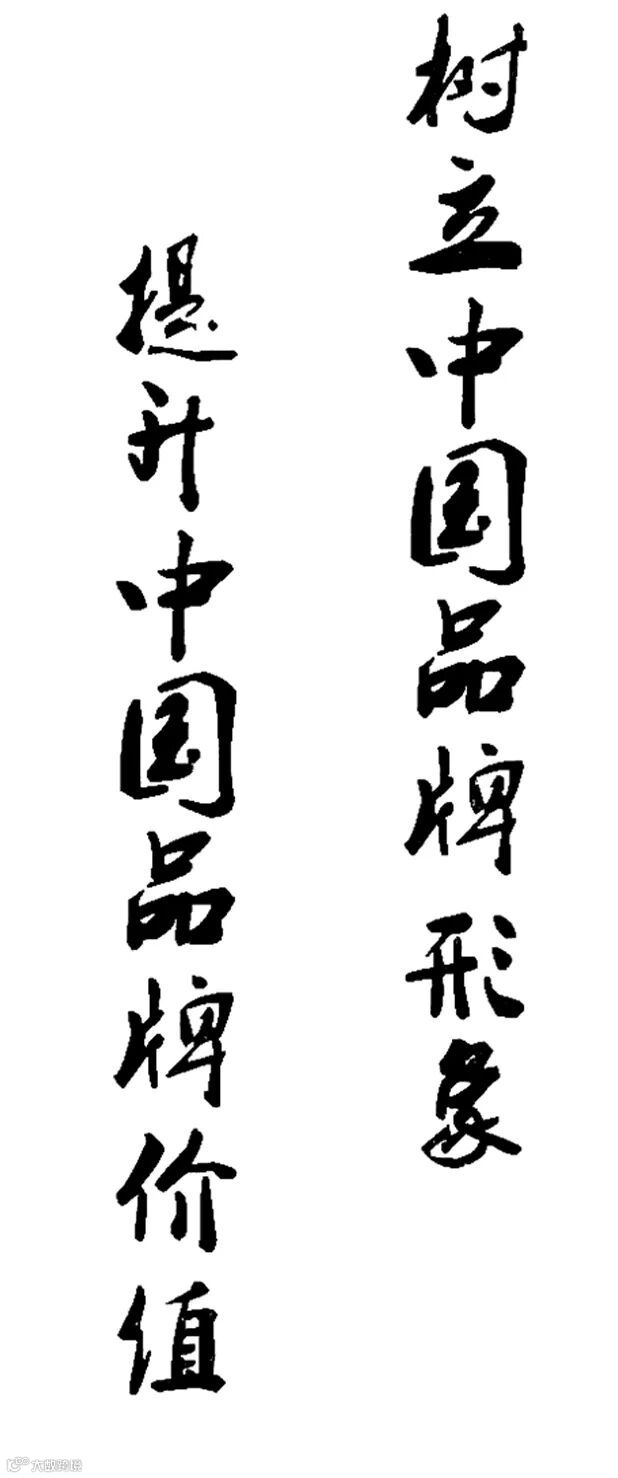 树立中国品牌形象
提升中国品牌价值
大数跨境